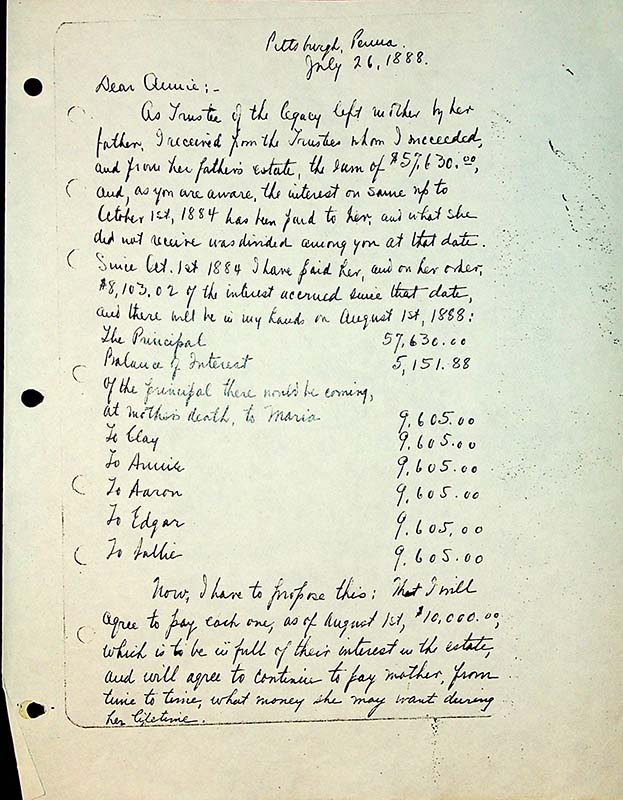 Pittsburgh, Penna.
July 26, 1888.
Dear Annie:-
As Trustee of the legacy left mother by her
father, I received from the Trustees whom I succeeded,
and from her father's estate, the sum of $57,630.00,
and, as you are aware, the interest on same up to
October 1st, 1884 has been paid to her, and what she
did not receive was divided among you at that date.
Since Oct. 1st 1884 I have paid her, and on her order,
$8,103.02 of the interest accrued since that date,
and there will be in my hands on August 1st, 1888:
The Principal 57,630.00
Balance of Interest 5,151.88
Of the principal there would be coming,
at mother's death, to Maria 9,605.00
To Clay 9,605.00
To Annie 9,605.00
To Aaron 9,605.00
To Edgar 9,605.00
To Sallie 9,605.00
Now, I have to propose this: That I will
agree to pay each one, as of August 1st, $10,000.00,
which is to be in full of their interest in the estate,
and will agree to continue to pay mother, from
time to time, what money she may want during
her lifetime.